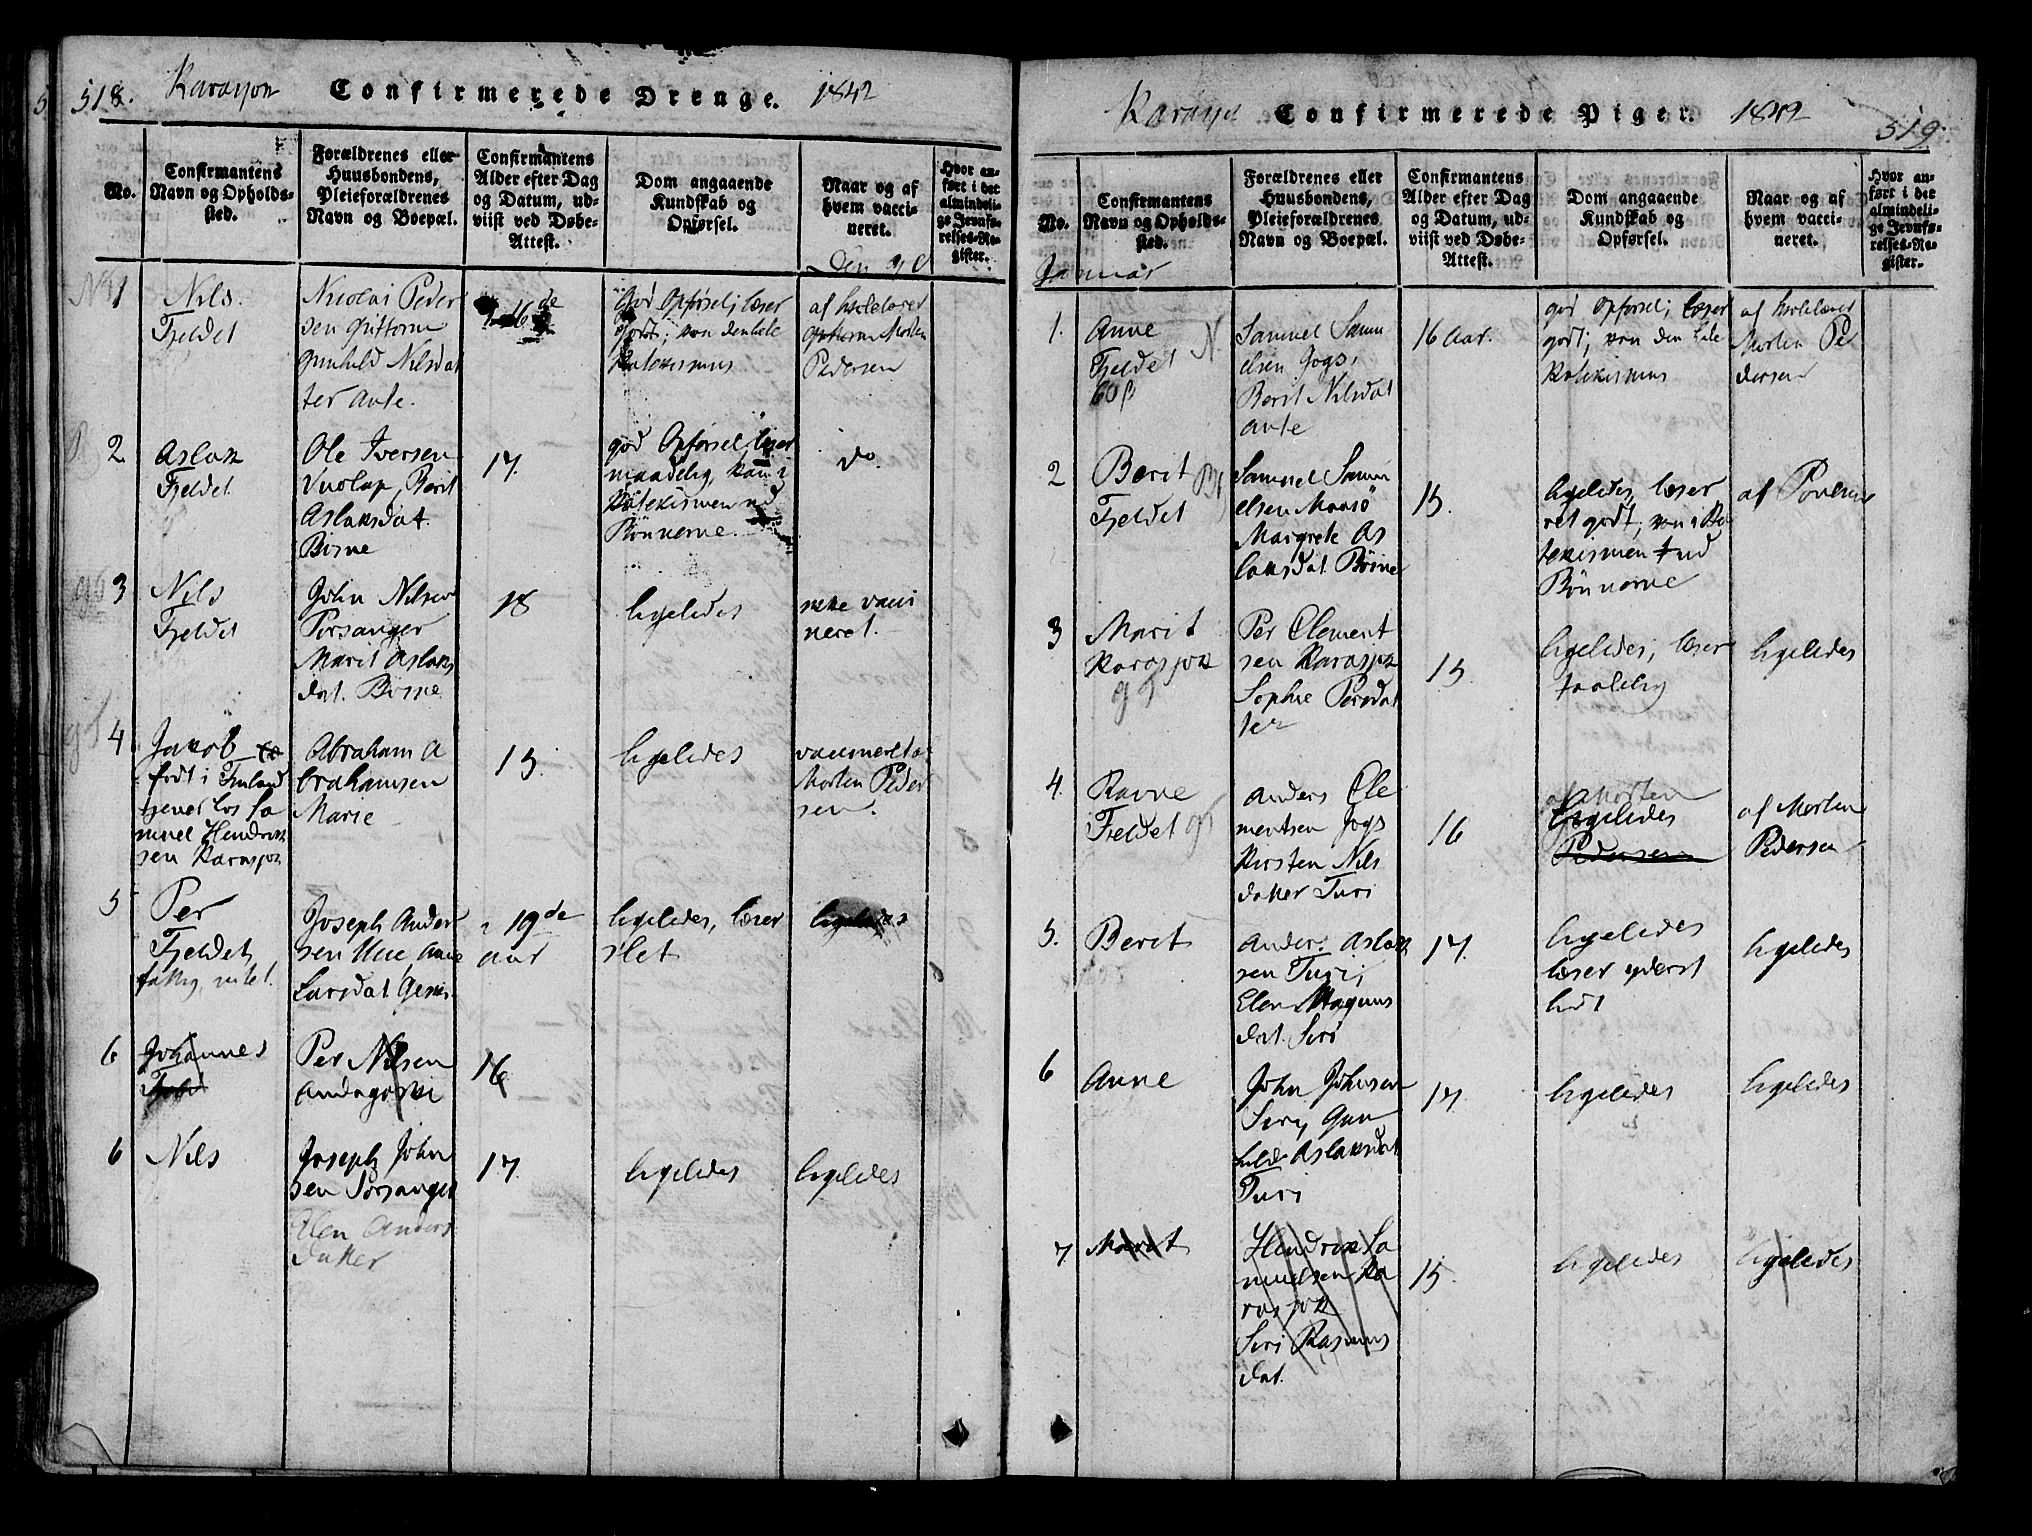 518. Karasjok Confirmerede Drenge. 1842
No.
Confirmantens
Navn og Opholds-
sted.
Forældrenes eller
Huusbondens,
Pleieforældrenes
Navn og Boepæl.
Confirmantens
Alder efter Dag
og Datum, ud-
viist ved Døbe-
Attest.
Dom angaaende
Kundskab og
Opførsel.
Naar og af
hvem vacci-
neret.
Hvor an-
ført i det
almindeli-
ge Jevnfø-
relses-Re-
gister.
Den 9d
1
Nils
Fjeldet
Nicolai Peder
sen Guttorm
Gunhild Nilsdat
ter Ante.
16de
God Opførsel; læser
godt; kan den hele
Katekismus
af Skolelærer
Morten
Pedersen
2
Aslak
Fjeldet
Ole Iversen
Vuolap, Berit
Aslaksdat.
Birne
17.
god Opførsel, læser
maadelig, kan i
Katekismen ud
Bønnerne.
do.
3
Nils
Fjeldet
John Nilsen
Porsanger
Marit Aslaks
dat. Birne
18
ligeledes
ikke vacci
neret.
4
Jakob
født i Finland
tjener hos Sa
muel Hendrik
sen Karasjok
Abraham A
brahamsen
Marie
15.
ligeledes
vaccineret af
Morten Peder
sen.
5
Per
Fjeldet,
Joseph Ander
sen Anne
Larsdat
19de
aar
ligeledes, læser
slet
ligeledes
6
Johannes
Per Nilsen
16
6
Nils
Joseph John
sen Porsanger
Elen Anders
datter
17.
ligeledes
ligeledes
Karasjok Confirmerede Piger. 1842 519.
No.
Confirmantens
Navn og Opholds-
sted.
Forældrenes eller
Huusbondens,
Pleieforældrenes
Navn og Boepæl.
Confirmantens
Alder efter Dag
og Datum, ud-
viist ved Døbe-
Attest.
Dom angaaende
Kundskab og
Opførsel.
Naar og af
hvem vacci-
neret.
Hvor an-
ført i det
almindeli-
ge Jevnfø-
relses-Re-
gister.
Januar
1.
Anne
Fjeldet
Samuel Samu
elsen Jogs,
Berit Nilsdat
Ante
16 Aar.
god Opførsel; læser
godt; kan den hele
Katekismus
af Skolelærer
Morten Pe
dersen
2
Berit
Fjeldet
Samuel Samu
elsen Maasø
Margrete As
laksdat. Birne
15.
ligeledes, læser
ret godt; kan i Ka
tekismen ud
Bønnerne
3
Marit
Karasjok
Per Clement
sen Karasjok
Sophie Persdat
ter
15.
ligeledes, læser
taalelig
ligeledes
4.
Ravne
Fjeldet
Anders Cle
mentsen Jogs
Kirsten Nils
datter Turi
16
af Morten
ligeledes
Pedersen
af Morten
Pedersen
5.
Berit
Anders Aslak
sen Turi,
Elen Magnus
dat. Siri
17.
ligeledes
læser yderst
lidt
ligeledes
6
Anne
John Johnsen
Siri, Gun
hilde Aslaksdat
Turi
17.
ligeledes
ligeledes
7
Marit
Hendrik Sa
muelsen Ka
rasjok
Siri Rasmus
dat.
15.
ligeledes
ligeledes